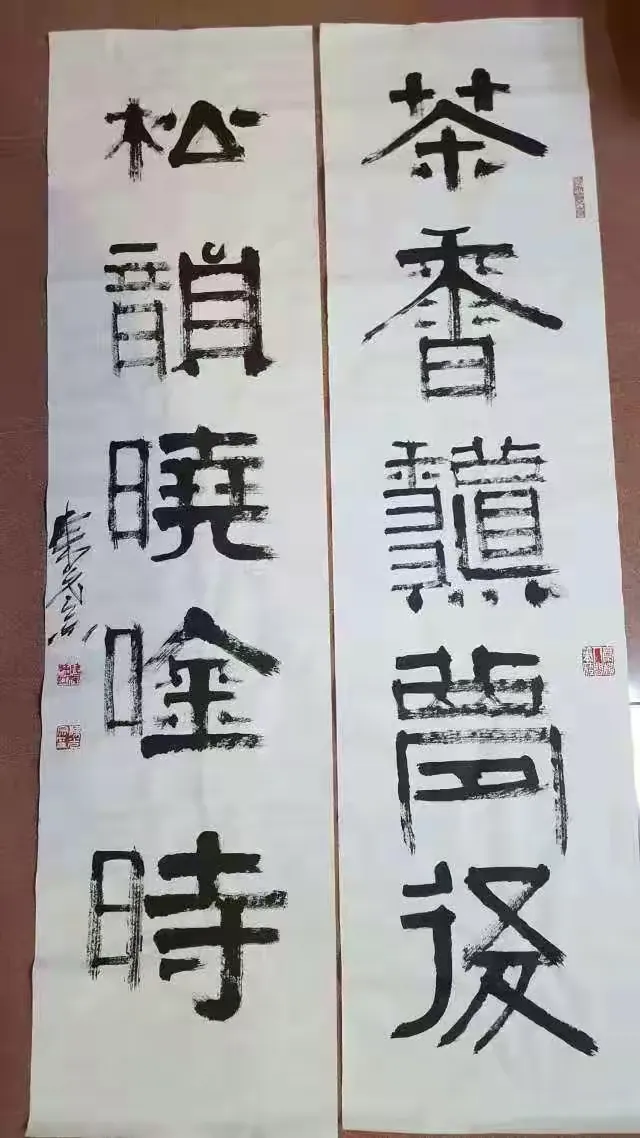 茶香夢後
松韻曉唫時